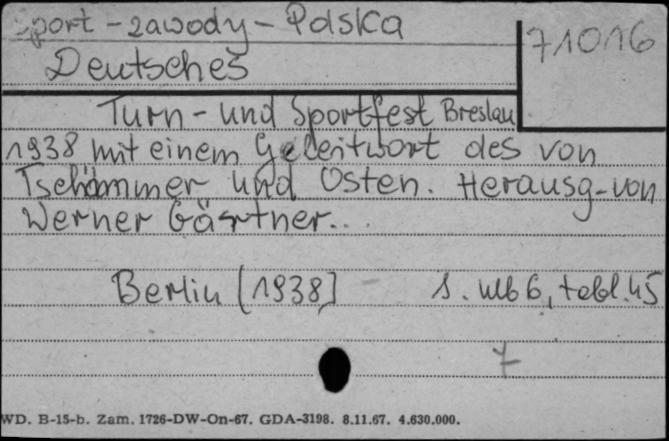 Sport-zawody-Polska
71016
Deutsches
Turn- und Sportfest Breslau
1938 mit einem Geleitwort des von
Tschammer und Osten. Herausg-von
Werner Gärtner...
Berlin [1938] s. nlb 6, tabl. 45
7
WD. B-15-b. Zam. 1726-DW-On-67. GDA-3198. 8.11.67. 4.630.000.